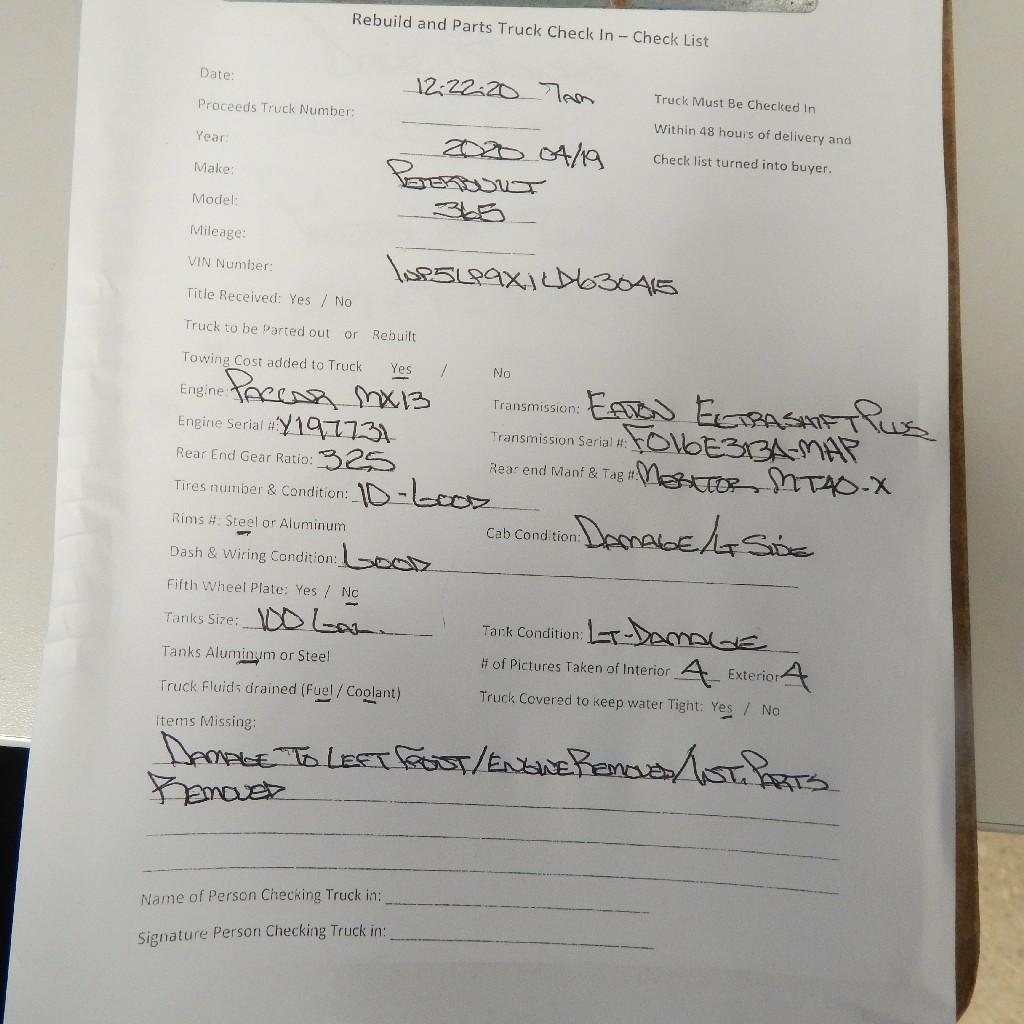 Rebuild and Parts Truck Check In – Check List
Date: 12:22:20 7am
Truck Must Be Checked In
Proceeds Truck Number:
Within 48 hours of delivery and
Year: 2020 04/19
Check list turned into buyer.
Make: PETERBUILT
Model: 365
Mileage:
VIN Number:
Title Received: Yes / No
Truck to be Parted out or Rebuilt
Towing Cost added to Truck Yes / No
Engine: PACCAR MX13 Transmission: EATON ECTRASHIFT PLUS
Engine Serial #: Y197731 Transmission Serial #: FO16E313A-MAP
Rear End Gear Ratio: 325 Rear end Manf & Tag #: MERITOR MT40-X
Tires number & Condition: 10 - GOOD
Rims #: Steel or Aluminum Cab Condition: DAMAGE/LT SIDE
Dash & Wiring Condition: GOOD
Fifth Wheel Plate: Yes / No
Tanks Size: 100 GAL. Tank Condition: LT-DAMAGE
Tanks Aluminum or Steel # of Pictures Taken of Interior 4 Exterior 4
Truck Fluids drained (Fuel / Coolant) Truck Covered to keep water Tight: Yes / No
Items Missing:
DAMAGE TO LEFT FRONT/ENGINE REMOVED/ PARTS
REMOVED
Name of Person Checking Truck in:
Signature Person Checking Truck in: